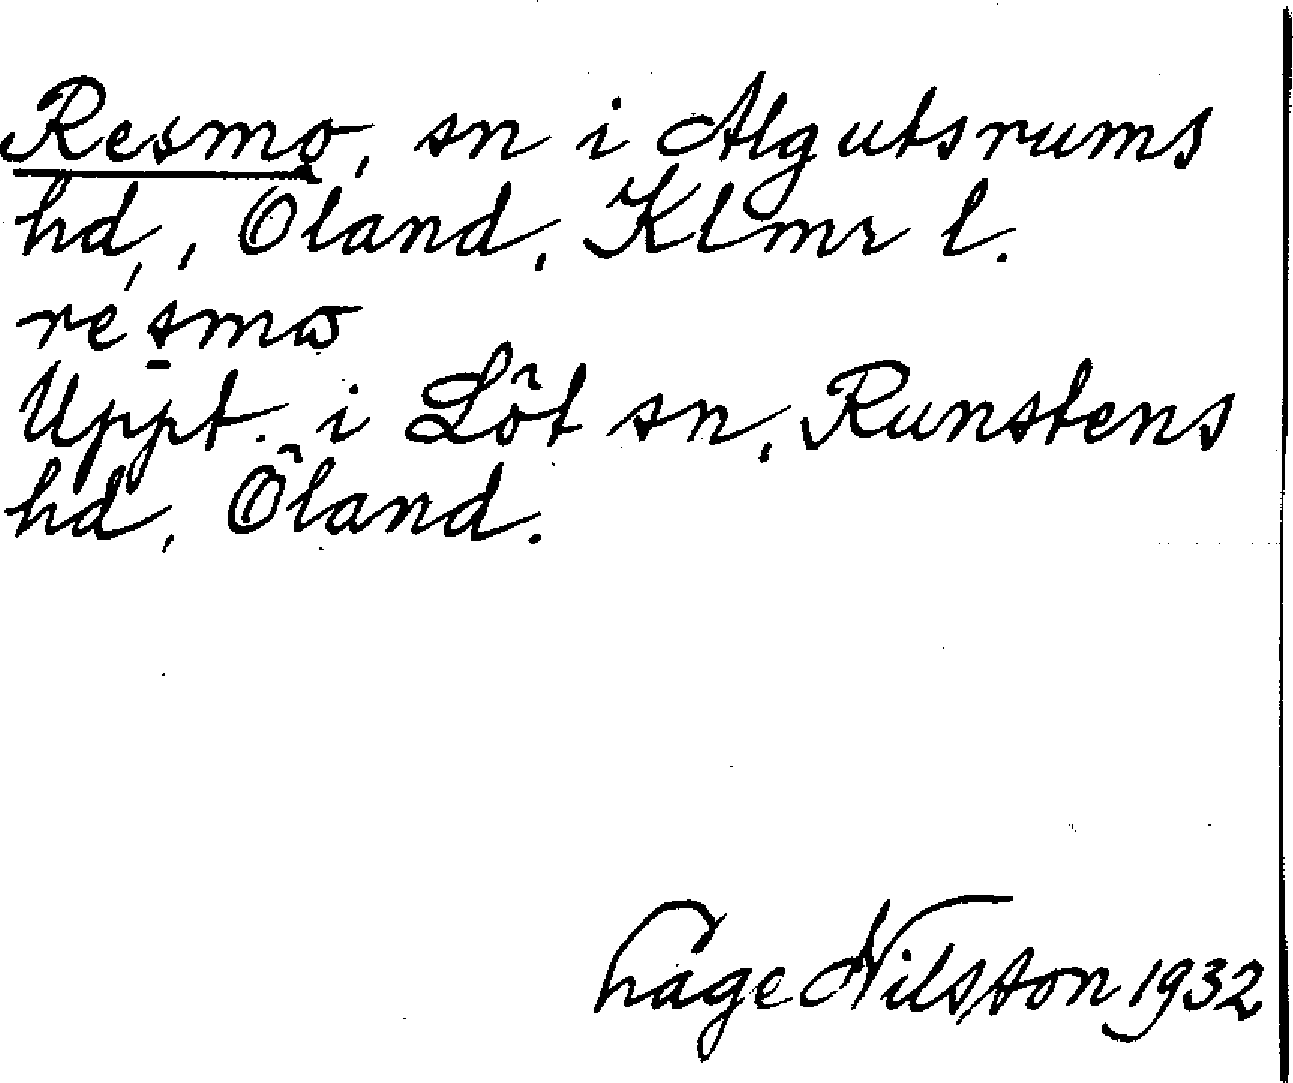 Resmo, sn i Algutsrums
hd, Öland, Klmr l.
résmω
Uppt. i Löt sn, Runstens
hd, Öland.
Åge Nilsson 1932